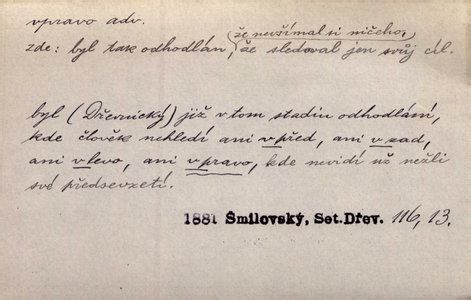 vpravo adv.
že nevšímal si ničeho,
zde: byl tak odhodlán, že sledoval jen svůj cíl.
byl (Dřevnický) již v tom stadiu odhodlání,
kde člověk nehledí ani vpřed, ani vzad,
ani vlevo, ani vpravo, kde nevidí už nežli
své předsevzetí.
1881 Šmilovský, Set.Dřev. 116, 13.